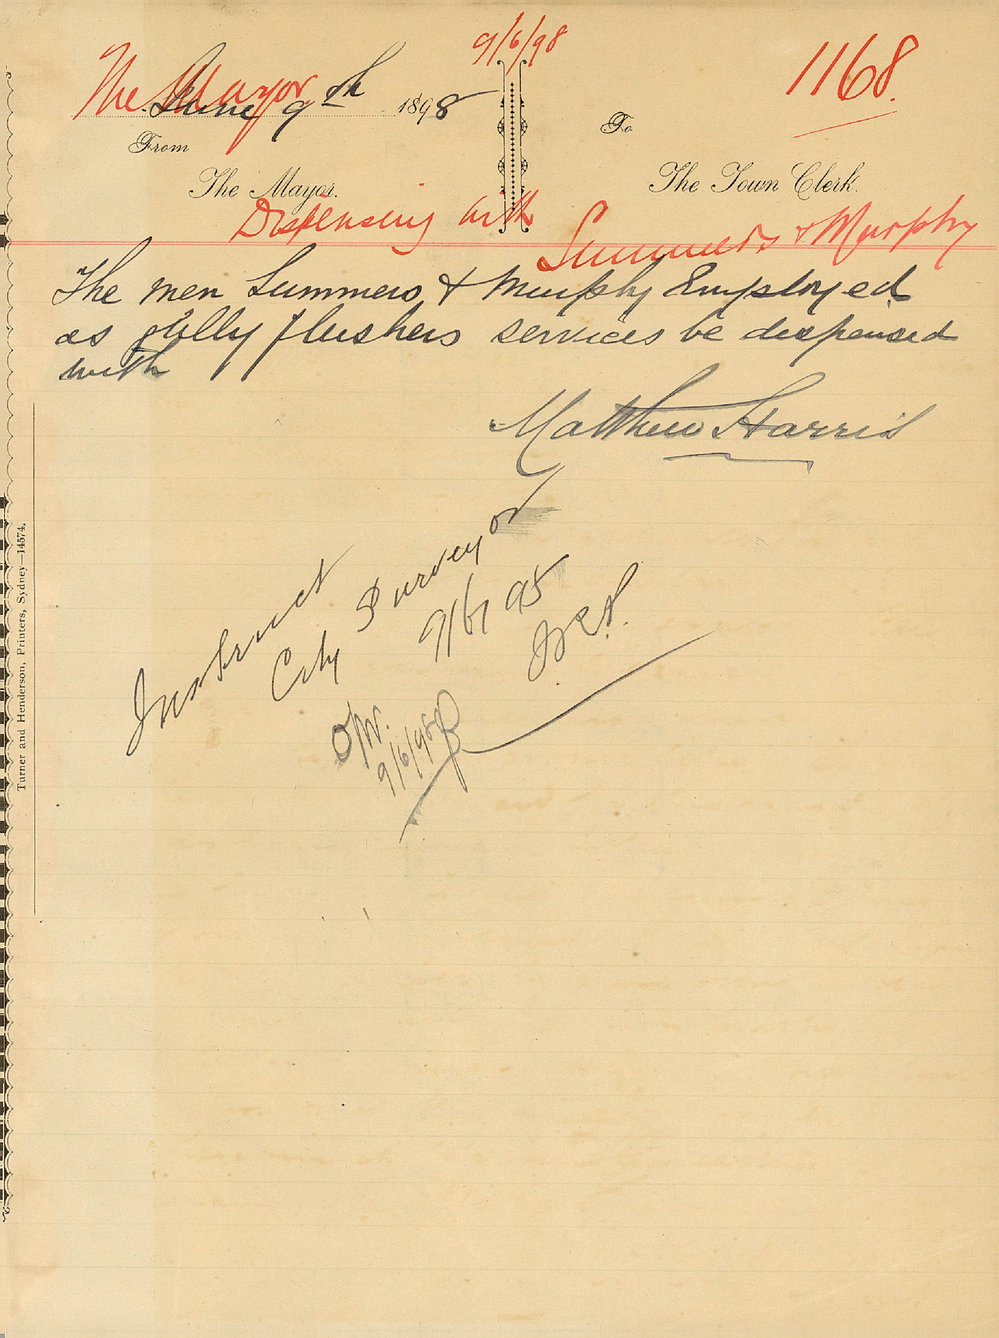 9/6/98
1168.
The Mayor
June 9th 1898
From
To
The Mayor.
The Town Clerk.
Dispensing with
Summers & Murphy
The men Summers & Murphy Employed
as gully flushers services be dispensed
with
Matthew Harris
Instruct
City Surveyor
9/6/98
9/6/98
Turner and Henderson, Printers, Sydney—14574.